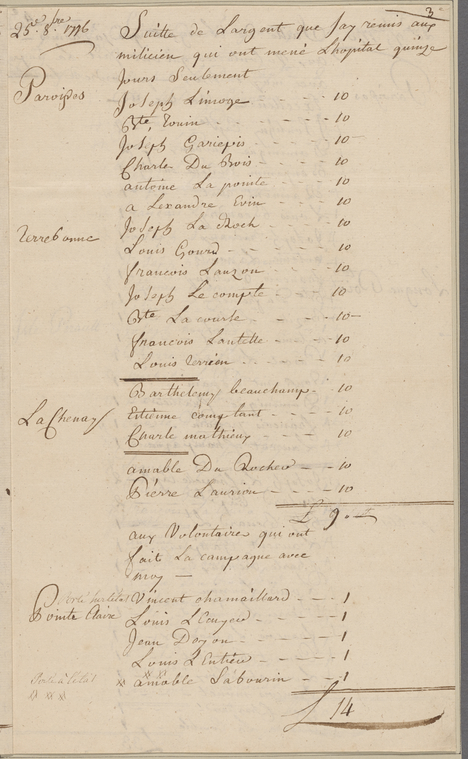 3
25e 8bre 1776 Suitte de Largent que Jay remis aux
milicien qui ont mené Lhopital quinze
Jours Seulement
Paroisses
Joseph Limoge - - - 10
Bte Evuin - - - - 10
Joseph Gariepis - - - 10
Charle Du Bois - - - 10
antoine La pointe - - 10
a Lexandre Evin - - - 10
Terrebonne Joseph La Roch - - - 10
Louis Gourd - - - - 10
francois Lauzon - - - 10
Joseph Le compte - - - 10
Bte La course - - - 10
francois Lautelle - - - 10
Louis Terrien - - - - 10
Barthelemy beauchamp - 10
La Chenay Etienne comptant - - - 10
Charle mathieux - - - 10
amable Du Rocher - - 10
Pierre Laurion - - - 10
£ 9 . =
aux Volontaire qui ont
fait La campagne avec
moy —
Vincent chamaillard - - - 1
Pointe Claire Louis - - - 1
Jean Doyon - - - - 1
Louis L'Entier - - - - 1
x amable Sabourin - - - 1
£ 14